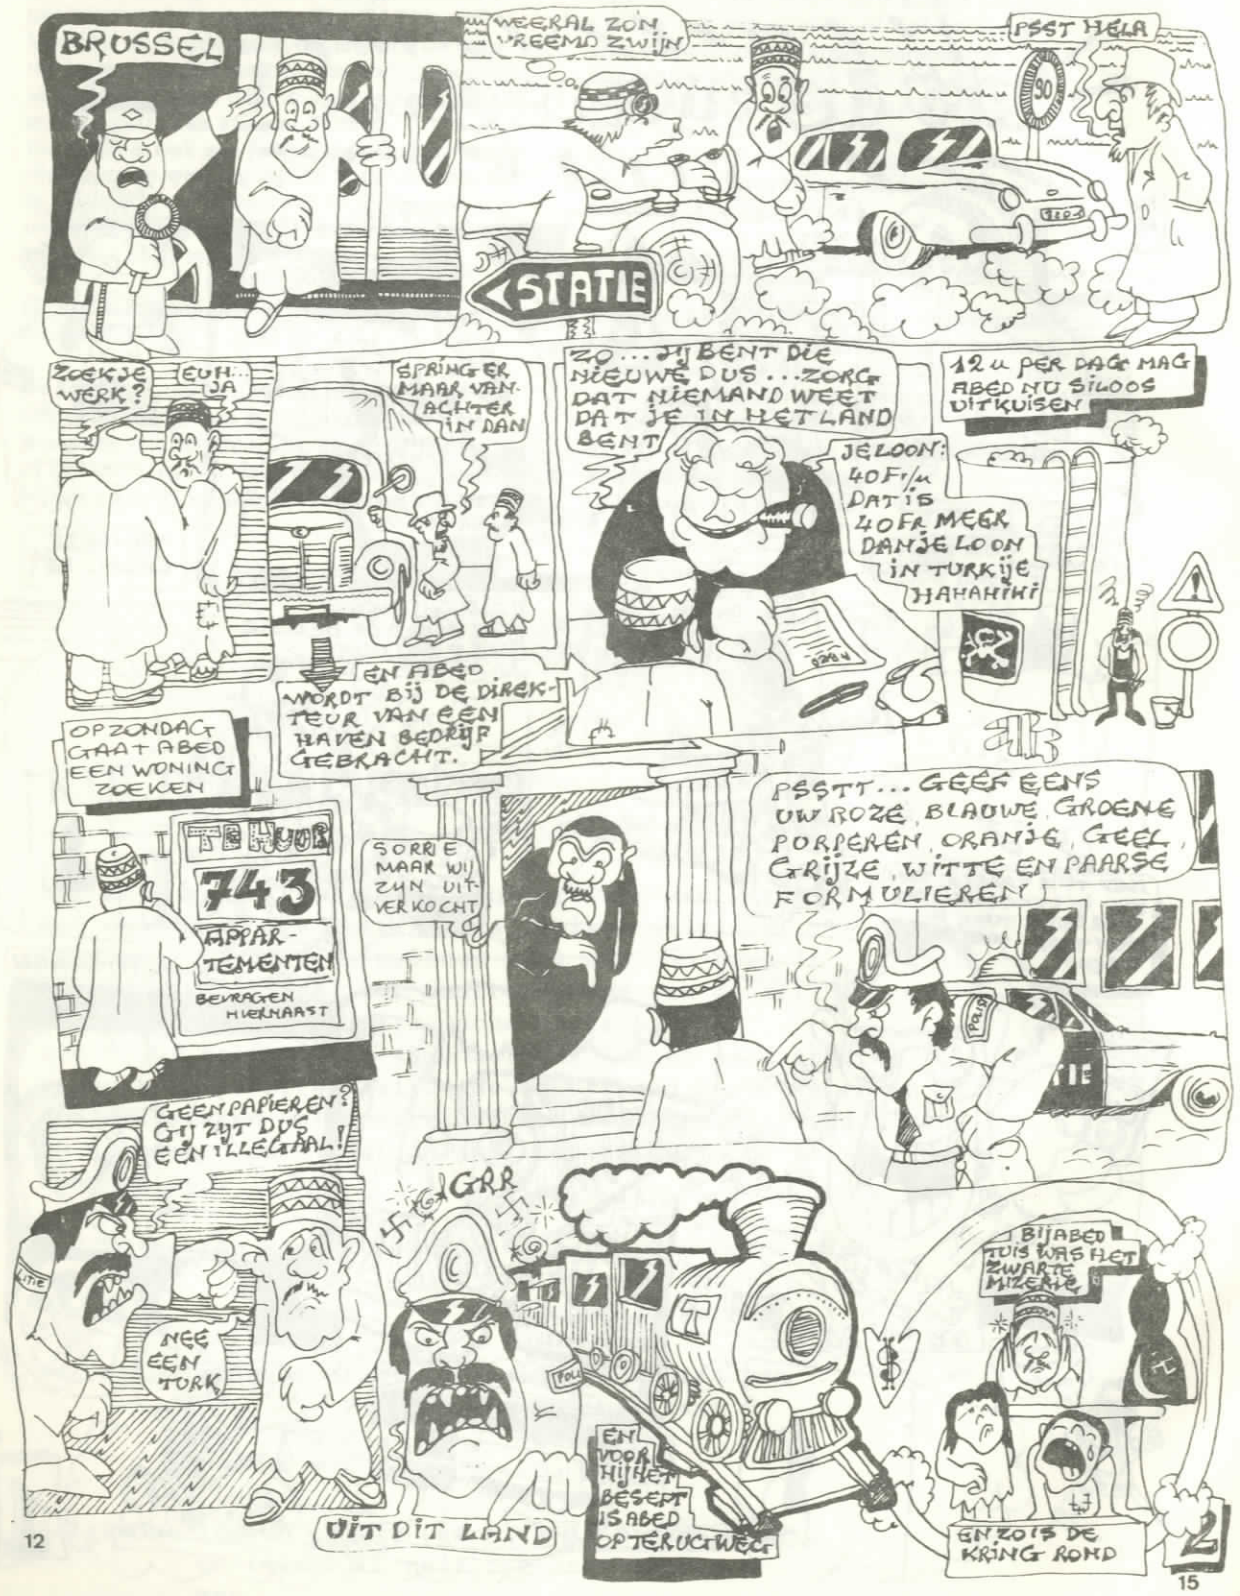 BRUSSEL
WEERAL ZO'N
VREEMD ZWIJN
PSST HELA
90
<STATIE
ZOEK JE
WERK?
EUH...
JA
SPRING ER
MAAR VAN-
ACHTER
IN DAN
EN ABED
WORDT BIJ DE DIREK-
TEUR VAN EEN
HAVEN BEDRIJF
GEBRACHT.
ZO... JIJ BENT DIE
NIEUWE DUS... ZORG
DAT NIEMAND WEET
DAT JE IN HET LAND
BENT
JE LOON:
40 Fr/u
DAT IS
40 FR MEER
DAN JE LOON
IN TURKIJE
HAHAHIHI
12 u PER DAG MAG
ABED NU SILOOS
UITKUISEN
OP ZONDAG
GAAT ABED
EEN WONING
ZOEKEN
TE HUUR
743
APPAR-
TEMENTEN
BEVRAGEN
HIERNAAST
SORRIE
MAAR WIJ
ZYN UIT-
VERKOCHT
PSSTT... GEEF EENS
UW ROZE, BLAUWE, GROENE
PURPEREN, ORANJE, GEEL,
GRIJZE, WITTE EN PAARSE
FORMULIEREN
POLI
TIE
GEEN PAPIEREN?
GIJ ZYT DUS
EEN ILLEGAAL!
ITIE
NEE
EEN
TURK
GRR
POLI
UIT DIT LAND
T
EN
VOOR
HIJ HET
BESEFT
IS ABED
OP TERUGWEG
$
BIJ ABED
TUIS WAS HET
ZWARTE
MIZERIE
EN ZO IS DE
KRING ROND
2
12
15